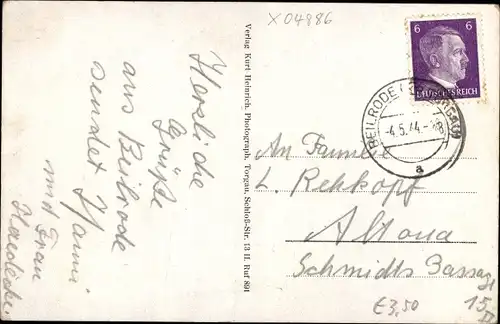 X 04886
Herzliche
Grüße
aus Beilrode
sendet Hanni
und Frau
Verlag Kurt Heinrich, Photograph, Torgau, Schloß-Str. 13 II. Ruf 891
6 6
DEUTSCHES REICH
BEILRODE
-4.5.44.-
a
An Familie
L. Rehkopf
Altona
Schmidts Passage
15
€3,50